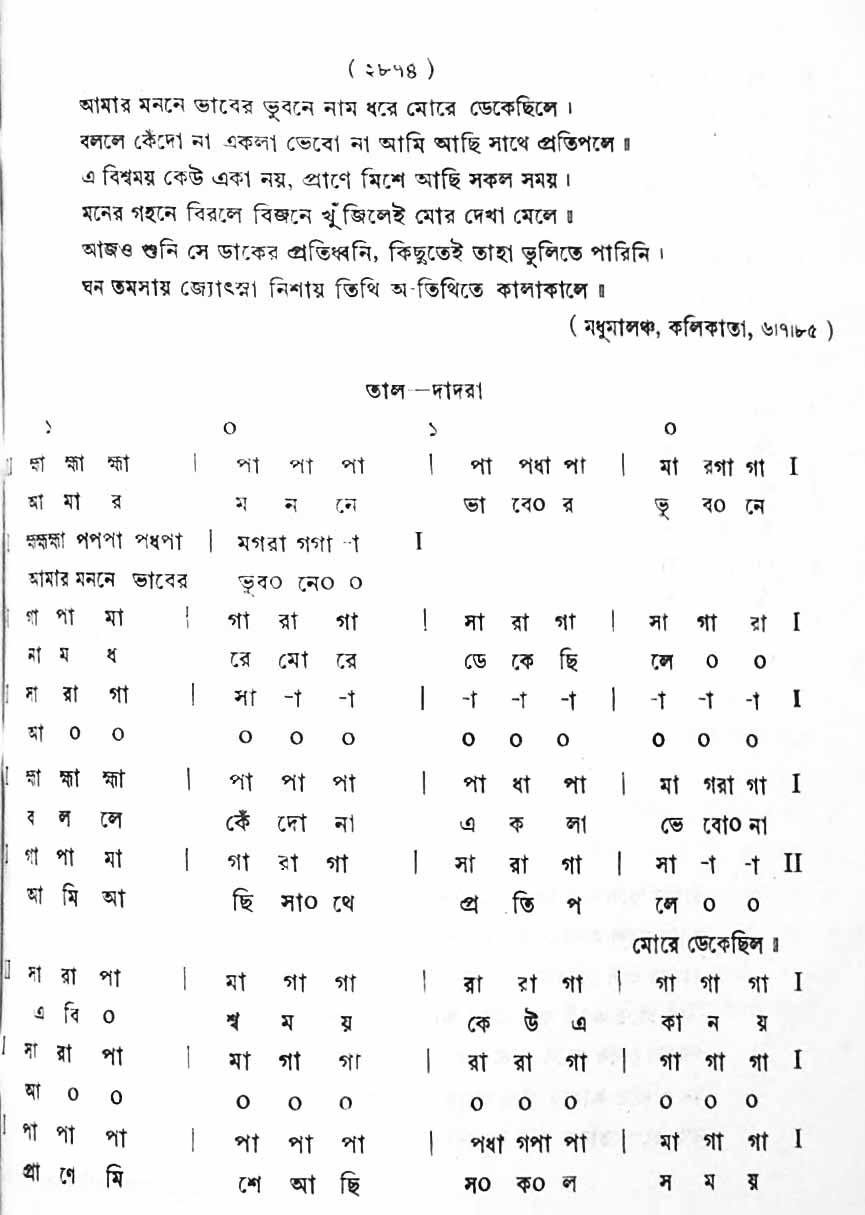 ( ২৮৭৪ )
আমার মননে ভাবের ভুবনে নাম ধরে মোরে ডেকেছিলে ।
বললে কেঁদো না একলা ভেবো না আমি আছি সাথে প্রতিপলে ॥
এ বিশ্বময় কেউ একা নয়, প্রাণে মিশে আছি সকল সময় ।
মনের গহনে বিরলে বিজনে খুঁজিলেই মোর দেখা মেলে ॥
আজও শুনি সে ডাকের প্রতিধ্বনি, কিছুতেই তাহা ভুলিতে পারিনি ।
ঘন তমসায় জ্যোৎস্না নিশায় তিথি অ-তিথিতে কালাকালে ॥
( মধুমালঞ্চ, কলিকাতা, ৬।৭।৮৫ )
তাল—দাদরা
১ ০ ১ ০
হ্মা হ্মা হ্মা | পা পা পা | পা পধা পা | মা রগা গা I
আ মা র ম ন নে ভা বে০ র ভু ব০ নে
হ্মহ্মহ্মা পপপা পধপা | মগরা গগা -া I
আমার মননে ভাবের ভুব০ নে০ ০
গা পা মা | গা রা গা | সা রা গা | সা গা রা I
না ম ধ রে মো রে ডে কে ছি লে ০ ০
সা রা গা | সা -া -া | -া -া -া | -া -া -া I
আ ০ ০ ০ ০ ০ ০ ০ ০ ০ ০ ০
হ্মা হ্মা হ্মা | পা পা পা | পা ধা পা | মা গরা গা I
ব ল লে কেঁ দো না এ ক লা ভে বো০ না
গা পা মা | গা রা গা | সা রা গা | সা -া -া II
আ মি আ ছি সা০ থে প্র তি প লে ০ ০
মোরে ডেকেছিল ॥
সা রা পা | মা গা গা | রা রা গা | গা গা গা I
এ বি ০ শ্ব ম য় কে উ এ কা ন য়
সা রা পা | মা গা গা | রা রা গা | গা গা গা I
আ ০ ০ ০ ০ ০ ০ ০ ০ ০ ০ ০
পা পা পা | পা পা পা | পধা গপা পা | মা গা গা I
প্রা ণে মি শে আ ছি স০ ক০ ল স ম য়